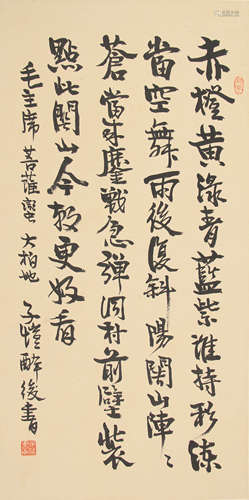 赤橙黄渌青藍紫誰持彩練
當空舞雨後復斜陽関山陣々
蒼當年鏖戰急彈洞村前壁裝
點此関山今朝更好看
毛主席菩薩蠻大柏地 子愷醉後書